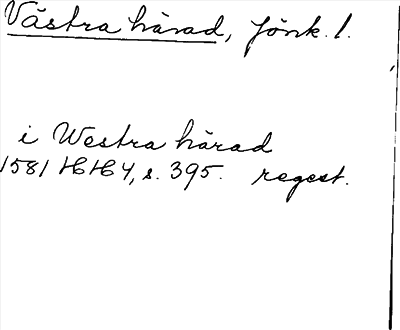 Västra härad, Jönk. l.
i Westra härad
1581 HH 4, s. 395. regest.